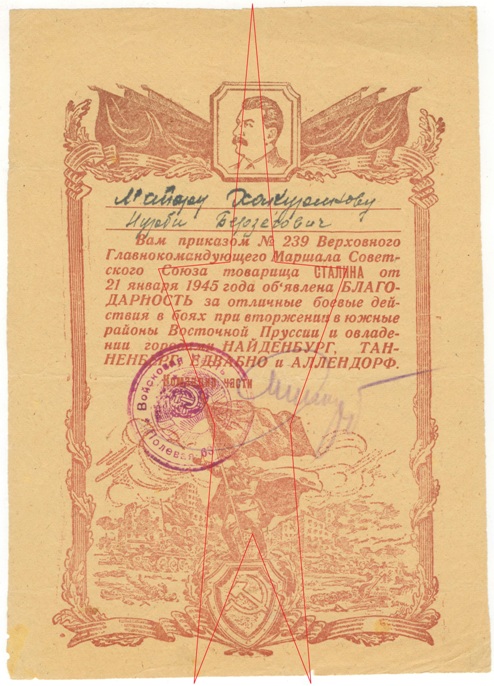 Майору
Нурби
Вам приказом № 239 Верховного
Главнокомандующего Маршала Совет-
ского Союза товарища СТАЛИНА от
21 января 1945 года об'явлена БЛАГО-
ДАРНОСТЬ за отличные боевые дей-
ствия в боях при вторжении в южные
районы Восточной Пруссии и овладе-
нии городами НАЙДЕНБУРГ, ТАН-
НЕНБЕРГ, ЕДВАБНО и АЛЛЕНДОРФ.
Командир части
Войсковая
Полевая